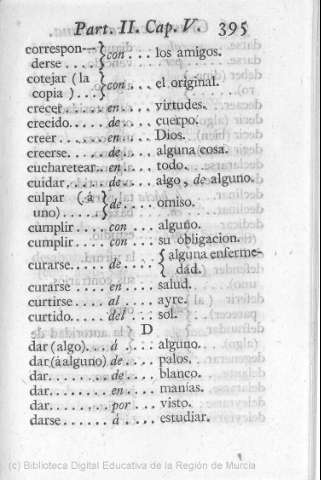 Part. II. Cap. V. 395
correspon-
derse . . . . } con . . . los amigos.
cotejar (la
copia ) . . . } con . . . el original.
crecer . . . . . en . . . . virtudes.
crecido. . . . . de . . . . cuerpo.
creer . . . . . . en . . . . Dios.
creerse. . . . . de . . . . alguna cosa.
cucharetear. en . . . . todo.
cuidar. . . . . . de . . . . algo, de alguno.
culpar (à
uno) . . . . . } de . . . omiso.
cumplir . . . . con . . . alguno.
cumplir . . . . con . . . su obligacion.
curarse. . . . . de . . . . { alguna enferme-
dád.
curarse . . . . . en . . . . salud.
curtirse . . . . al . . . . ayre.
curtido. . . . . del . . . sol.
D
dar (algo). . . á . . . . alguno.
dar (à alguno) de . . . . palos.
dar. . . . . . . . de . . . . blanco.
dar. . . . . . . . en . . . . manías.
dar. . . . . . . . por . . . visto.
darse . . . . . . á . . . . estudiar.
(c) Biblioteca Digital Educativa de la Región de Murcia